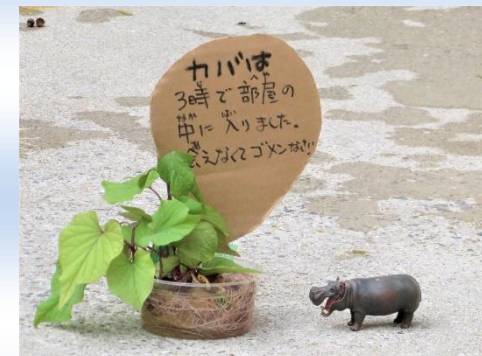 カバは
3時で部屋の
中に入りました。
会えなくてゴメンなさい